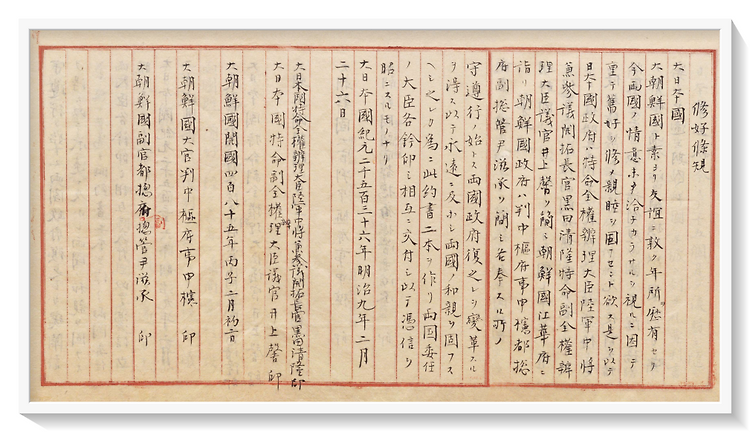 修好條規
大日本國
大朝鮮國ト素ヨリ友誼ニ敦ク年所ヲ歴有セリ
今両國ノ情意未タ洽ネカラサルヲ視ルニ因テ
重テ舊好ヲ修メ親睦ヲ固フセント欲ス是ヲ以テ
日本國政府ハ特命全權辨理大臣陸軍中將
兼參議開拓長官黒田清隆特命副全權辨
理大臣議官井上馨ヲ簡ミ朝鮮國江華府ニ
詣リ朝鮮國政府ハ判中樞府事申櫶都捴
府副捴管尹滋承ヲ簡ミ各奉スル所ノ
守遵行ノ始トス両國政府復之レヲ變革スル
ヲ得ス以テ永遠ニ及ホシ両國ノ和親ヲ固フス
ヘシ之レカ為ニ此約書二本ヲ作リ両国委任
ノ大臣各鈐印シ相互ニ交付シ以テ憑信ヲ
昭ニスルモノナリ
大日本國紀元二千五百三十六年明治九年二月
二十六日
大日本國特命全權辨理大臣陸軍中將兼參議開拓長官黒田清隆印
大日本國特命副全權辨理大臣議官井上馨 印
大朝鮮國開國四百八十五年丙子二月初二日
大朝鮮國大官判中樞府事申櫶 印
大朝鮮國副官都捴府副捴管尹滋承 印